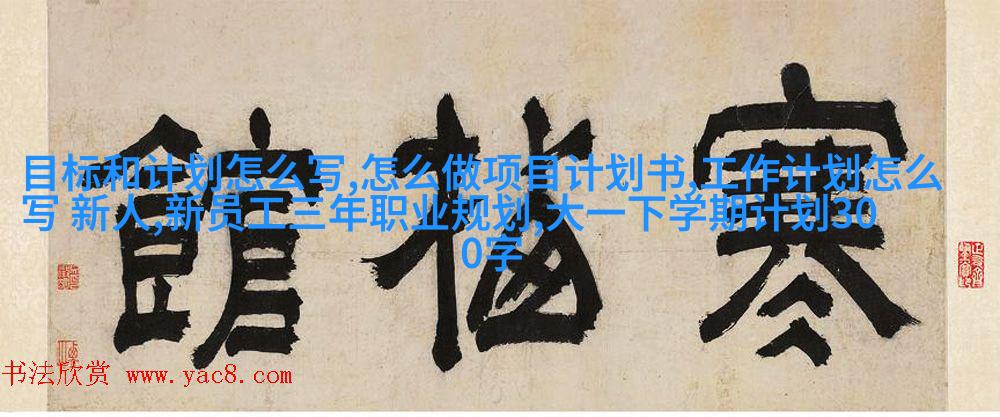 目标和计划怎么写,怎么做项目计划书,工作计划怎么
写 新人,新员工三年职业规划,大一下学期计划30
0字
寒梅館
书法欣赏 www.yac8.com